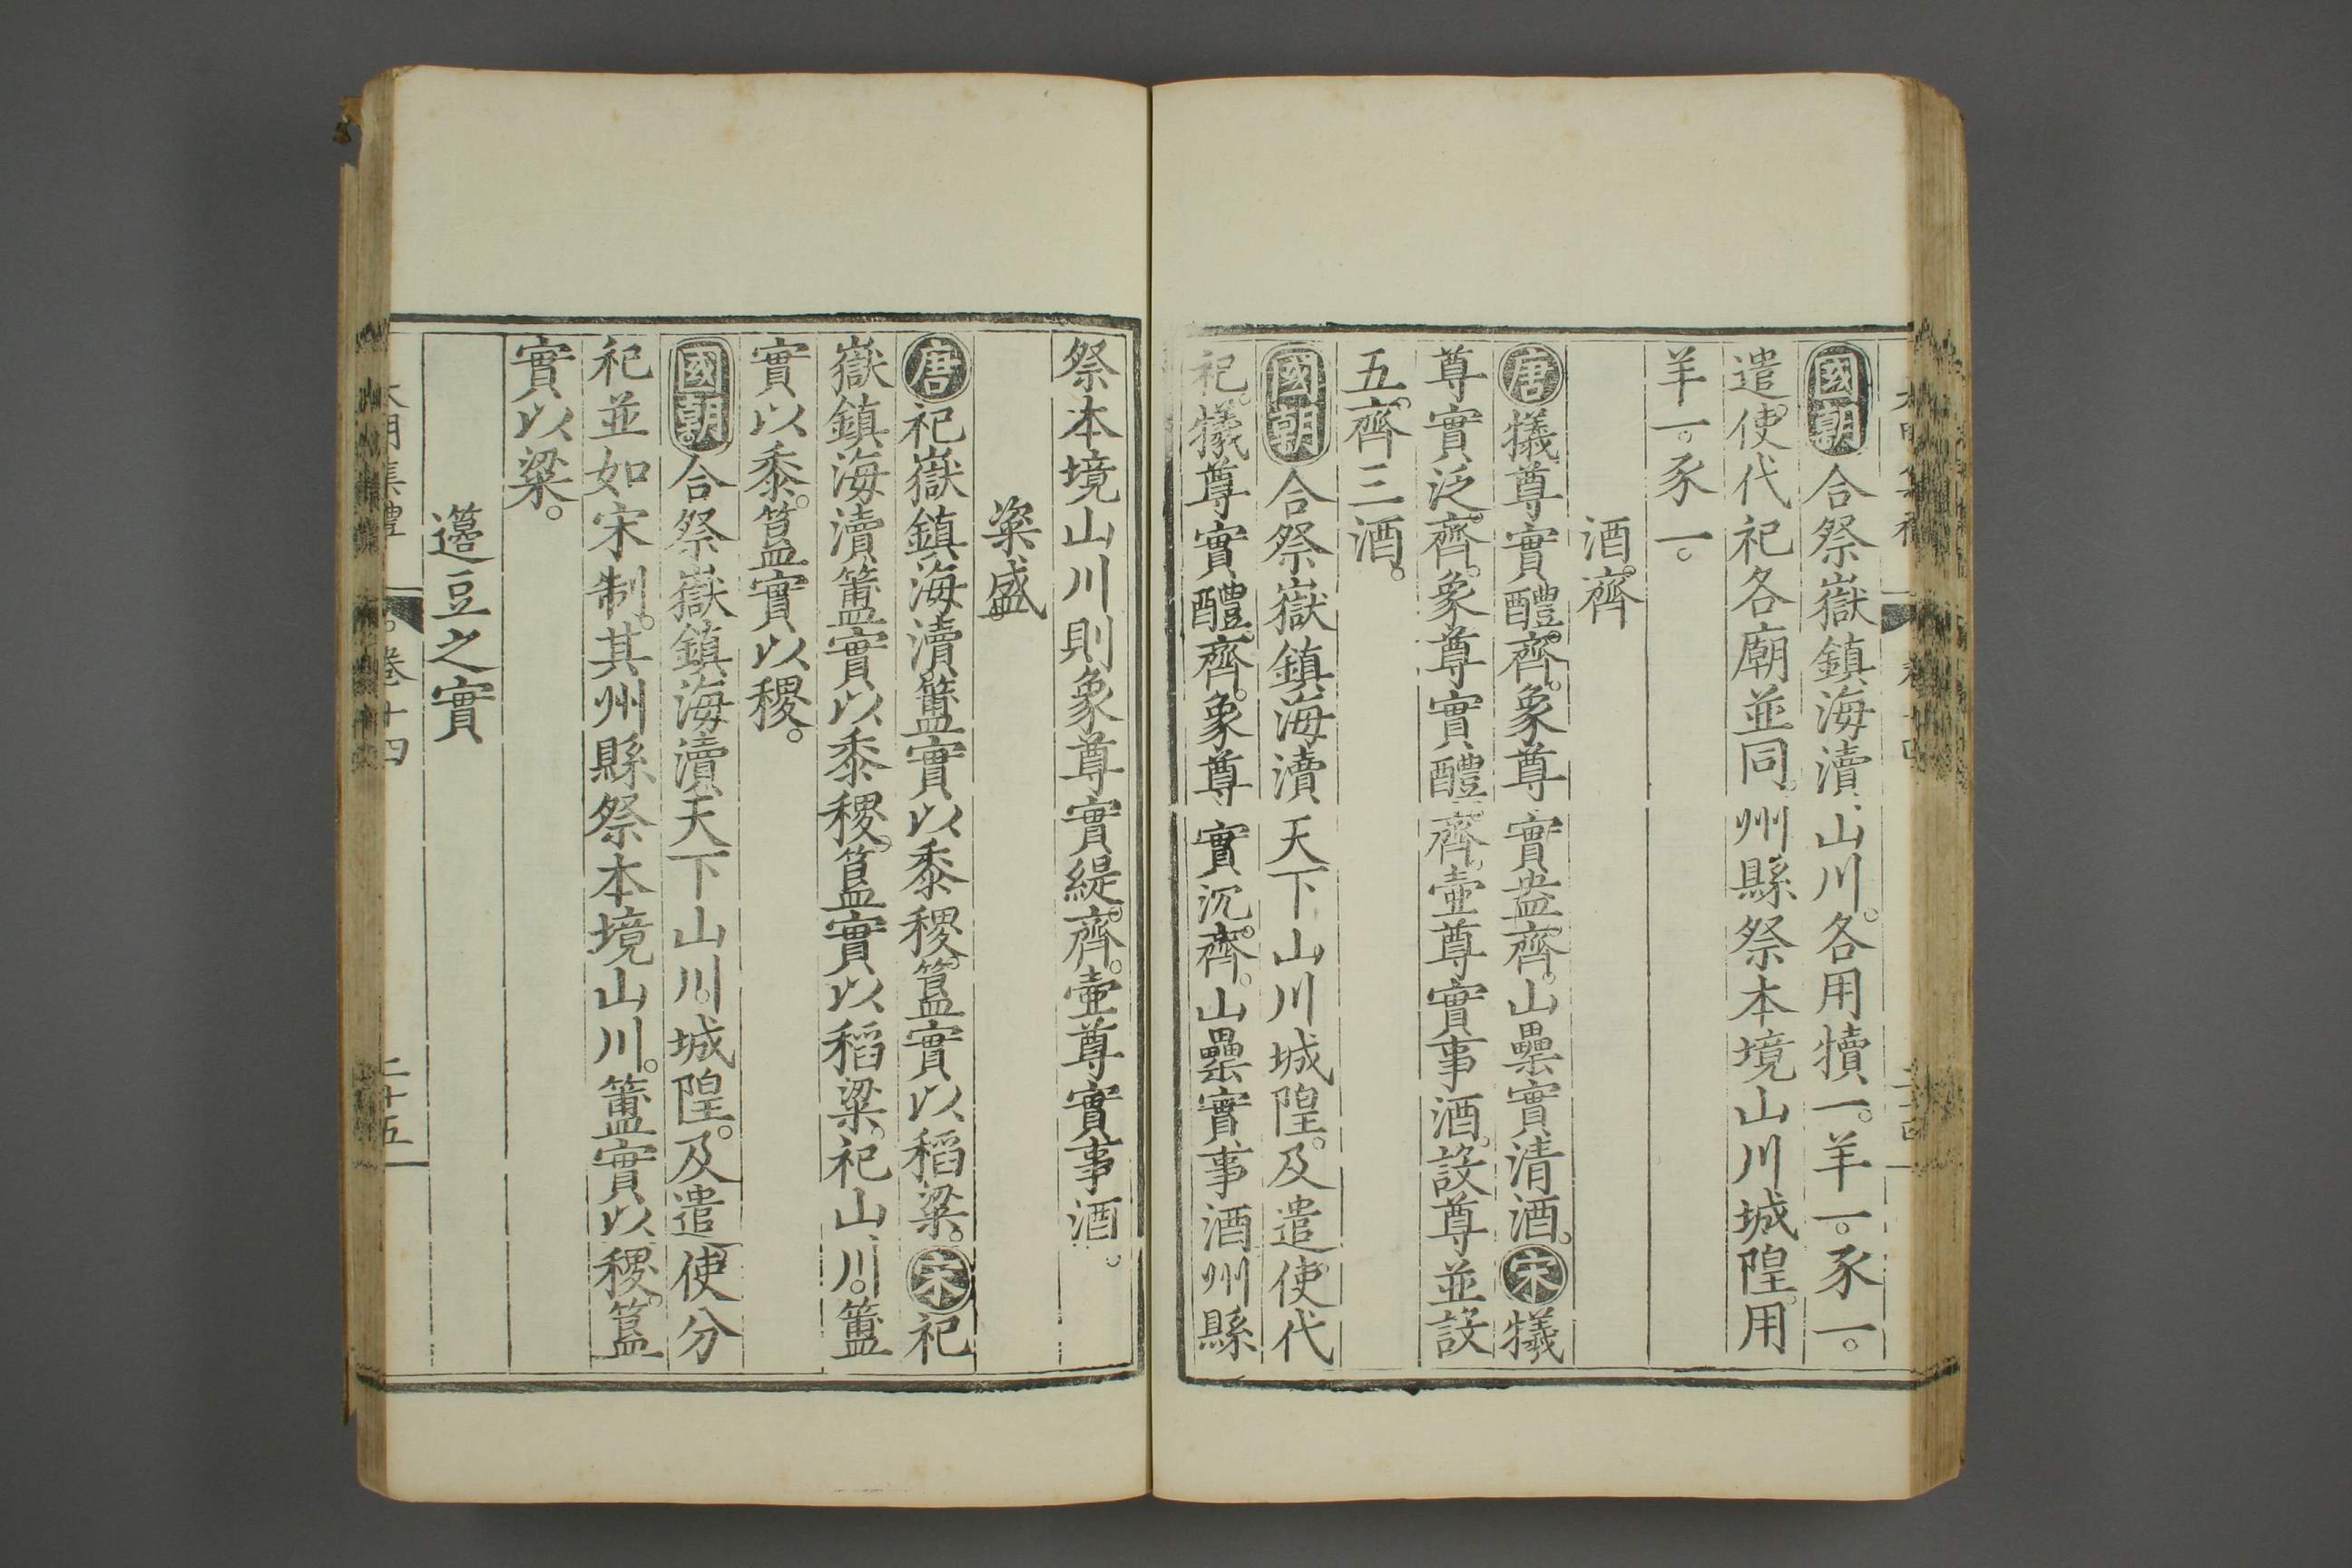 國朝合祭嶽鎮海瀆山川。各用犢一。羊一。豕一。
遣使代祀各廟並同。州縣祭本境山川城隍。用
羊一。豕一。
酒齊
唐犠尊實醴齊。象尊實盎齊。山罍實清酒。宋犠
尊實泛齊。象尊實醴齊。壷尊實事酒。設尊並設
五齊三酒。
國朝合祭嶽鎮海瀆天下山川城隍。及遣使代
祀。犠尊實醴齊。象尊實沉齊。山罍實事酒州縣
祭本境山川則象尊實緹齊。壷尊實事酒。
粢盛
唐祀嶽鎮海瀆簠實以黍稷。簋實以稻粱。宋祀
嶽鎮海瀆簠實以黍稷。簋實以稻粱。祀山川。簠
實以黍。簋實以稷。
國朝合祭嶽鎮海瀆天下山川。城隍。及遣使分
祀並如宋制。其州縣祭本境山川。簠實以稷。簋
實以粱。
籩豆之實
大明集禮 卷十四 二十五